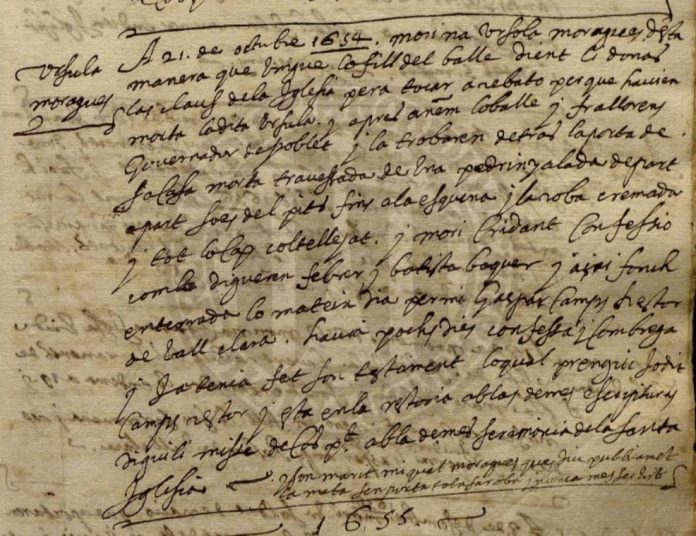 Ursula
moragues
A 21. de octubre 1654. mori na Ursola moragues desta
manera que vingue lo fill del balle dient li donas
las claus de la Iglesia pera tocar a rebato perque havien
morta la dita Ursula. y apres anem lo balle y fra llorens
Governador de Poblet y la trobaren detras la porta de
sa casa morta travessada de una pedrinyalada de part
a part soes del pits fins a la esquena y la roba cremada
y tot lo cap coltellejat. y mori cridant Confessio
com la digueren febrer y batista boquer y axi fonch
enterrada lo mateix dia per mi Gaspar Camps Rector
de Vall clara. havia pochs dies confessa y Combrega
y Ja tenia fet son testament loqual prengui Jo dit
Camps rector y esta en la rectoria ab las demes escripturas
digui li missa de Cos pt. ab la demes serimonia de la santa
Iglesia
y son marit miquel moragues ques diu publicament
la mata sen porta tota sa roba y nunca mes
1655